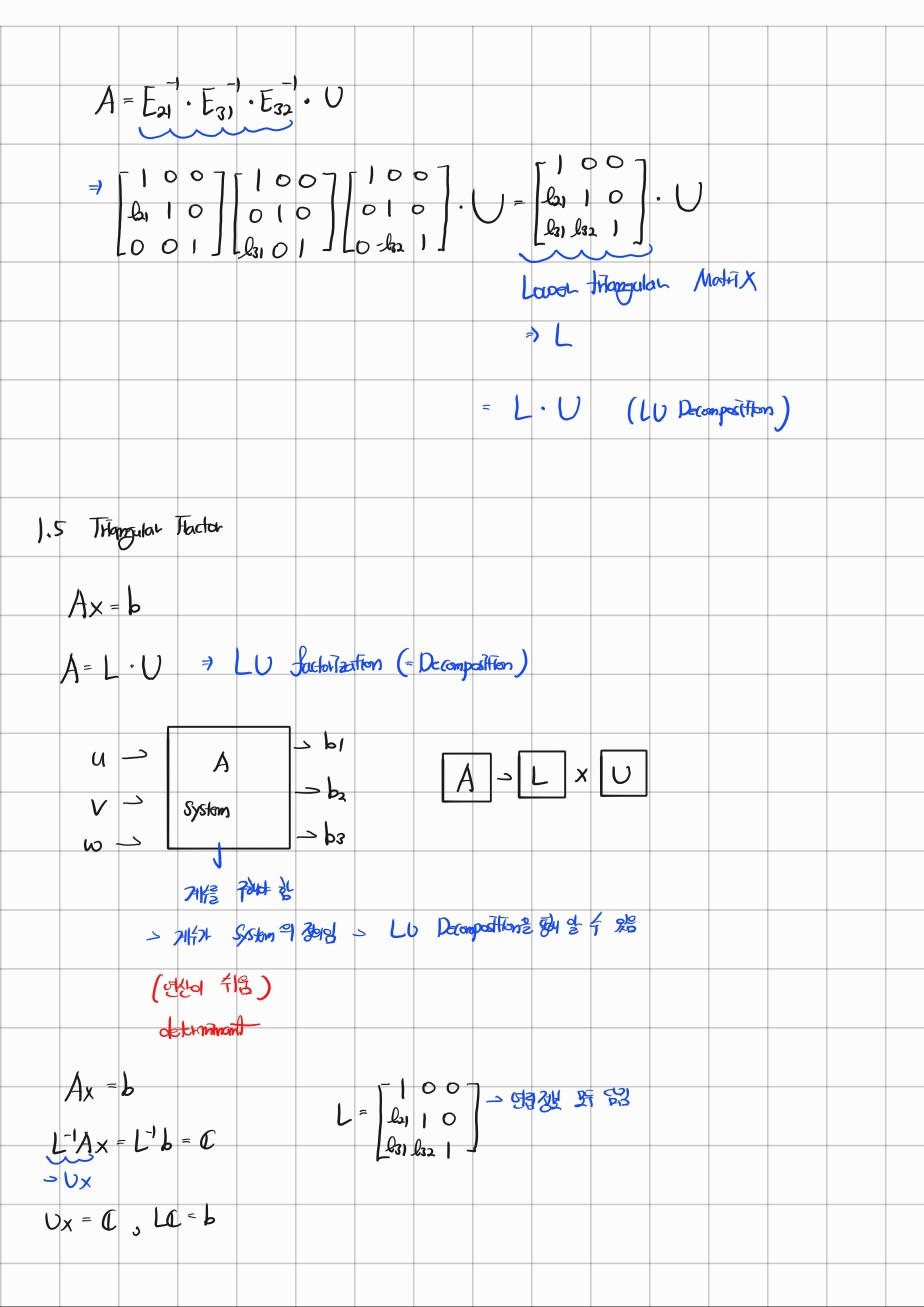 A = E₂₁⁻¹ · E₃₁⁻¹ · E₃₂⁻¹ · U
⇒ [1 0 0; l₂₁ 1 0; 0 0 1] [1 0 0; 0 1 0; l₃₁ 0 1] [1 0 0; 0 1 0; 0 -l₃₂ 1] · U = [1 0 0; l₂₁ 1 0; l₃₁ l₃₂ 1] · U
Lower triangular Matrix
⇒ L
= L · U (LU Decomposition)
1.5 Triangular Factor
Ax = b
A = L · U ⇒ LU factorization (= Decomposition)
u → A → b1
v → System → b2
w → → b3
A → L × U
계수를 구해야 함
→ 계수가 System의 정의임 → LU Decomposition을 통해 알 수 있음
(연산이 쉬움)
determinant
Ax = b
L = [1 0 0; l₂₁ 1 0; l₃₁ l₃₂ 1] → 모두 담김
L⁻¹Ax = L⁻¹b = ℂ
→ Ux
Ux = ℂ , Lℂ = b